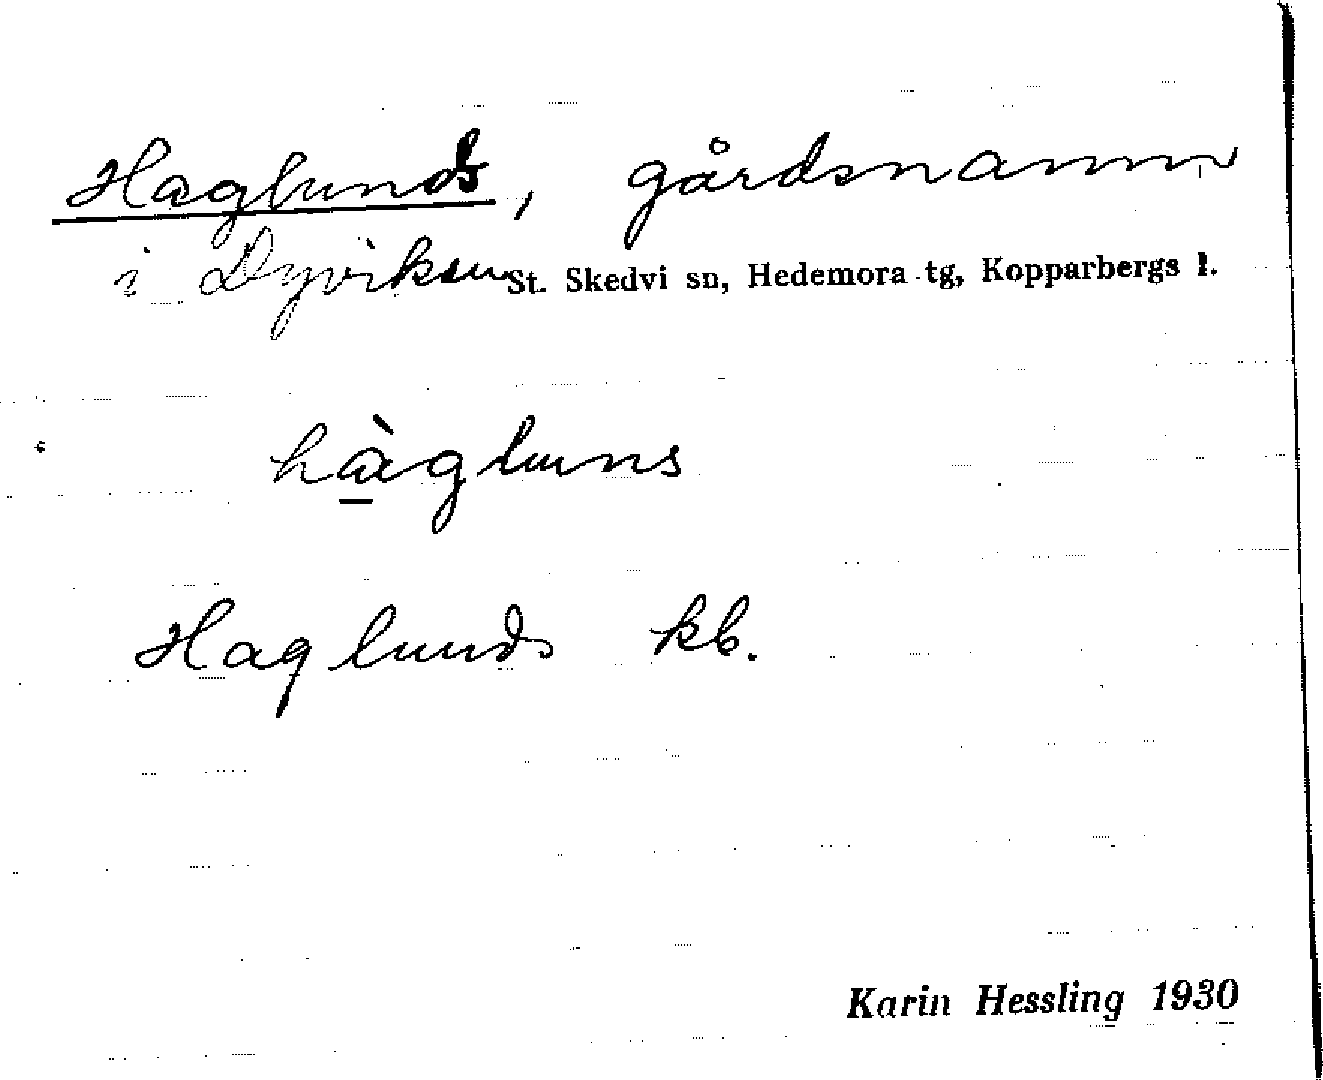 Haglunds, gårdsnamn
i Dyviken St. Skedvi sn, Hedemora tg, Kopparbergs l.
hàgluns
Haglunds kb.
Karin Hessling 1930